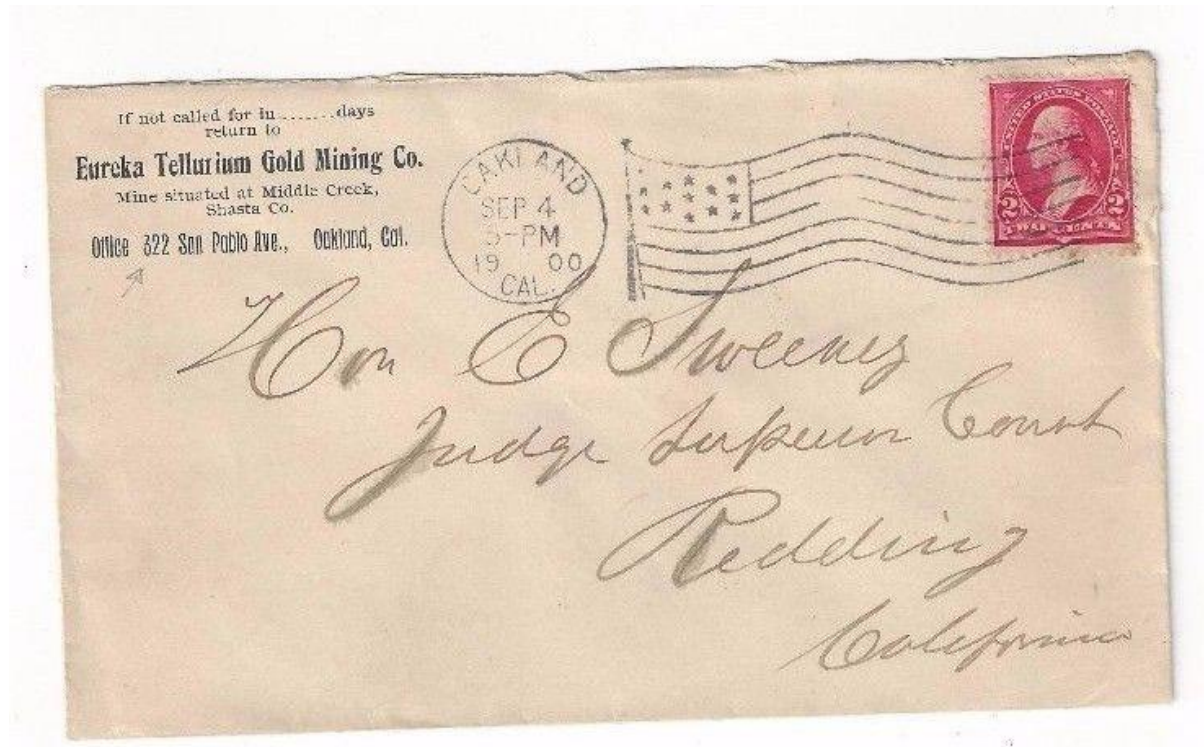 If not called for in........days
return to
Eureka Tellurium Gold Mining Co.
Mine situated at Middle Creek,
Shasta Co.
Office 322 San Pablo Ave., Oakland, Cal.
OAKLAND
SEP 4
5-PM
19 00
CAL.
UNITED STATES POSTAGE
2 2
TWO CENTS
Hon E Sweeney
Judge Superior Court
Redding
California